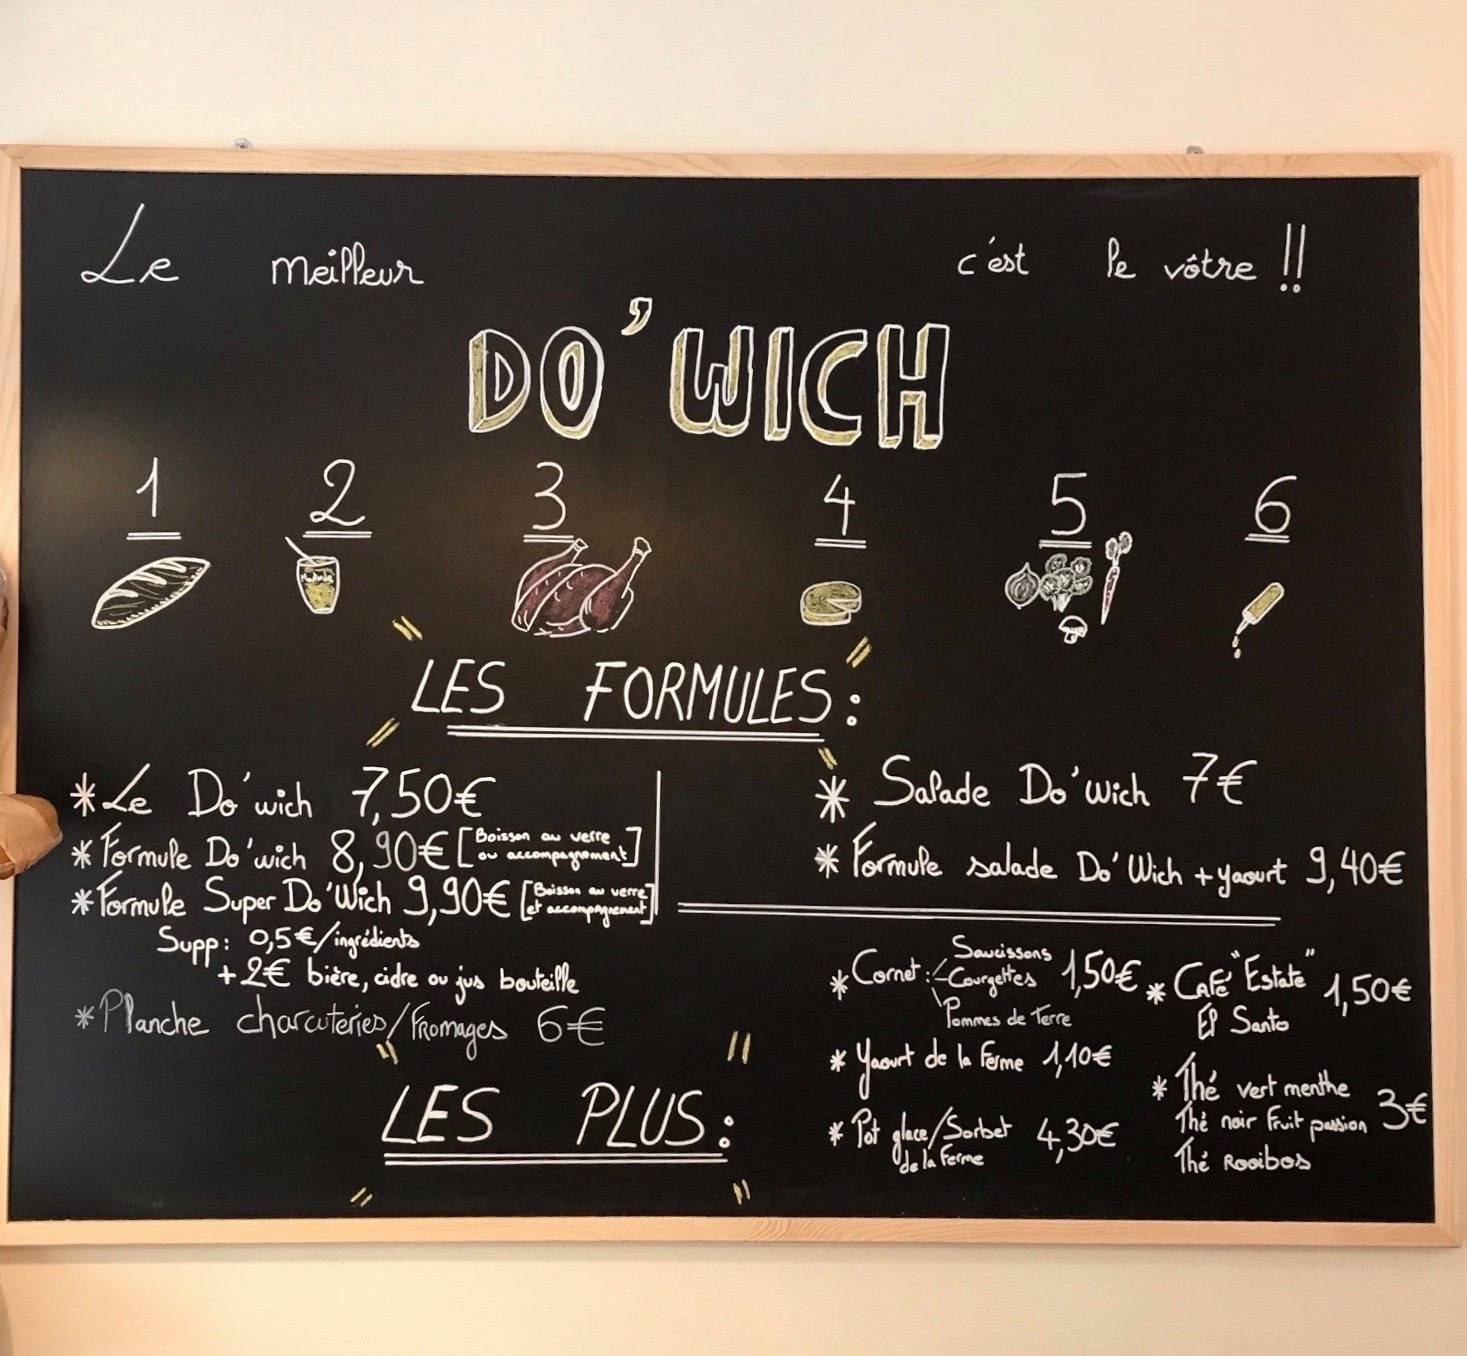 Le meilleur c'est le vôtre !!
DO'WICH
1 2 3 4 5 6
Moutarde
LES FORMULES :
* Le Do'wich 7,50€
* Formule Do'wich 8,90€ [Boisson au verre
ou accompagnement]
* Formule Super Do'Wich 9,90€ [Boisson au verre
et accompagnement]
Supp : 0,5€/ingrédients
+ 2€ bière, cidre ou jus bouteille
* Planche charcuteries/Fromages 6€
* Salade Do'Wich 7€
* Formule salade Do'Wich + yaourt 9,40€
LES PLUS :
* Cornet : Saucissons
- Courgettes 1,50€
Pommes de Terre
* Yaourt de la Ferme 1,10€
* Pot glace/Sorbet 4,30€
de la Ferme
* CAFé "Estate" 1,50€
El Santo
* Thé vert menthe
Thé noir Fruit passion 3€
Thé Rooibos